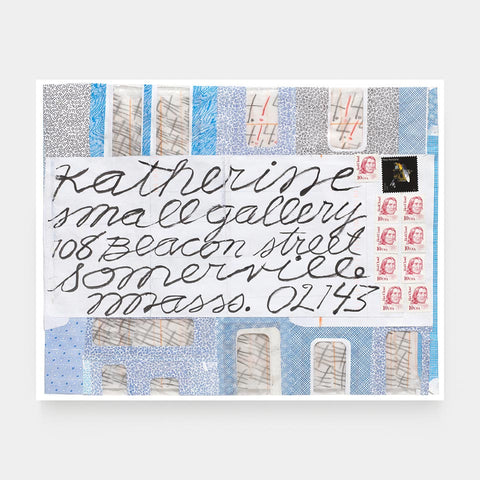 Katherine
small gallery
108 Beacon street
somerville
mass. 02143